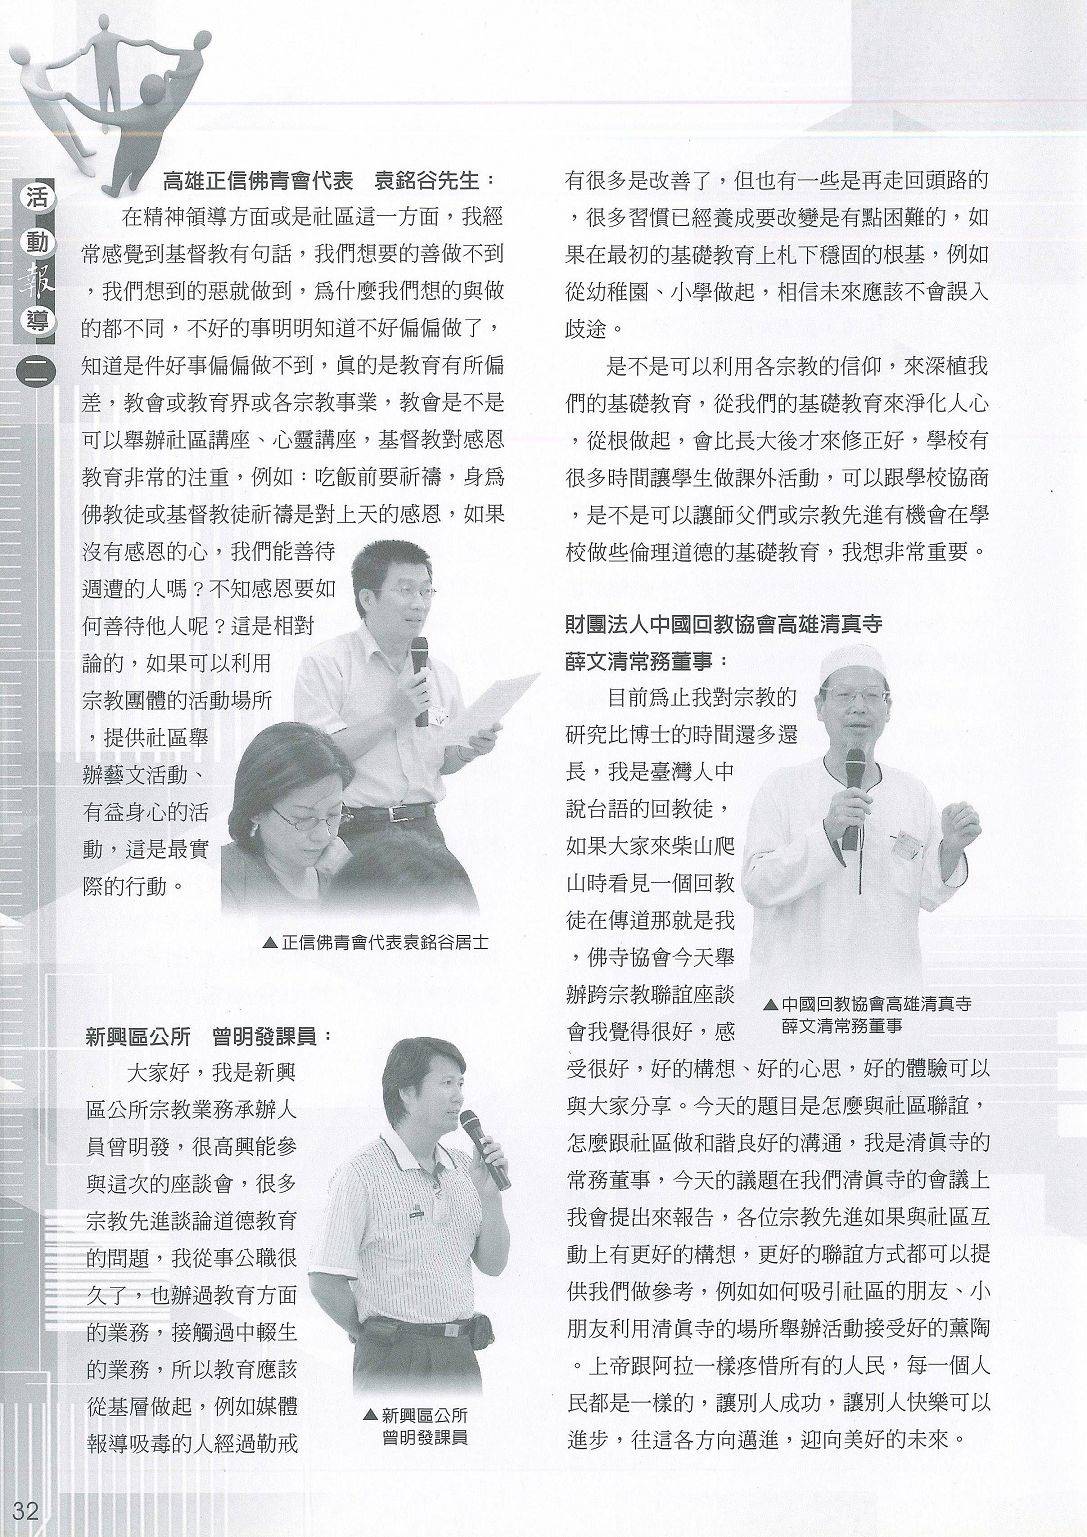 活動報導二
高雄正信佛青會代表　袁銘谷先生：
在精神領導方面或是社區這一方面，我經
常感覺到基督教有句話，我們想要的善做不到
，我們想到的惡就做到，為什麼我們想的與做
的都不同，不好的事明明知道不好偏偏做了，
知道是件好事偏偏做不到，眞的是教育有所偏
差，教會或教育界或各宗教事業，教會是不是
可以舉辦社區講座、心靈講座，基督教對感恩
教育非常的注重，例如：吃飯前要祈禱，身為
佛教徒或基督教徒祈禱是對上天的感恩，如果
沒有感恩的心，我們能善待
週遭的人嗎？不知感恩要如
何善待他人呢？這是相對
論的，如果可以利用
宗教團體的活動場所
，提供社區舉
辦藝文活動、
有益身心的活
動，這是最實
際的行動。
▲正信佛青會代表袁銘谷居士
新興區公所　曾明發課員：
大家好，我是新興
區公所宗教業務承辦人
員曾明發，很高興能參
與這次的座談會，很多
宗教先進談論道德教育
的問題，我從事公職很
久了，也辦過教育方面
的業務，接觸過中輟生
的業務，所以教育應該
從基層做起，例如媒體
報導吸毒的人經過勒戒
▲新興區公所
曾明發課員
有很多是改善了，但也有一些是再走回頭路的
，很多習慣已經養成要改變是有點困難的，如
果在最初的基礎教育上札下穩固的根基，例如
從幼稚園、小學做起，相信未來應該不會誤入
歧途。
是不是可以利用各宗教的信仰，來深植我
們的基礎教育，從我們的基礎教育來淨化人心
，從根做起，會比長大後才來修正好，學校有
很多時間讓學生做課外活動，可以跟學校協商
，是不是可以讓師父們或宗教先進有機會在學
校做些倫理道德的基礎教育，我想非常重要。
財團法人中國回教協會高雄清真寺
薛文清常務董事：
目前為止我對宗教的
研究比博士的時間還多還
長，我是臺灣人中
說台語的回教徒，
如果大家來柴山爬
山時看見一個回教
徒在傳道那就是我
，佛寺協會今天舉
辦跨宗教聯誼座談
會我覺得很好，感
受很好，好的構想、好的心思，好的體驗可以
與大家分享。今天的題目是怎麼與社區聯誼，
怎麼跟社區做和諧良好的溝通，我是清眞寺的
常務董事，今天的議題在我們清眞寺的會議上
我會提出來報告，各位宗教先進如果與社區互
動上有更好的構想，更好的聯誼方式都可以提
供我們做參考，例如如何吸引社區的朋友、小
朋友利用清眞寺的場所舉辦活動接受好的薰陶
。上帝跟阿拉一樣疼惜所有的人民，每一個人
民都是一樣的，讓別人成功，讓別人快樂可以
進步，往這各方向邁進，迎向美好的未來。
▲中國回教協會高雄清真寺
薛文清常務董事
32